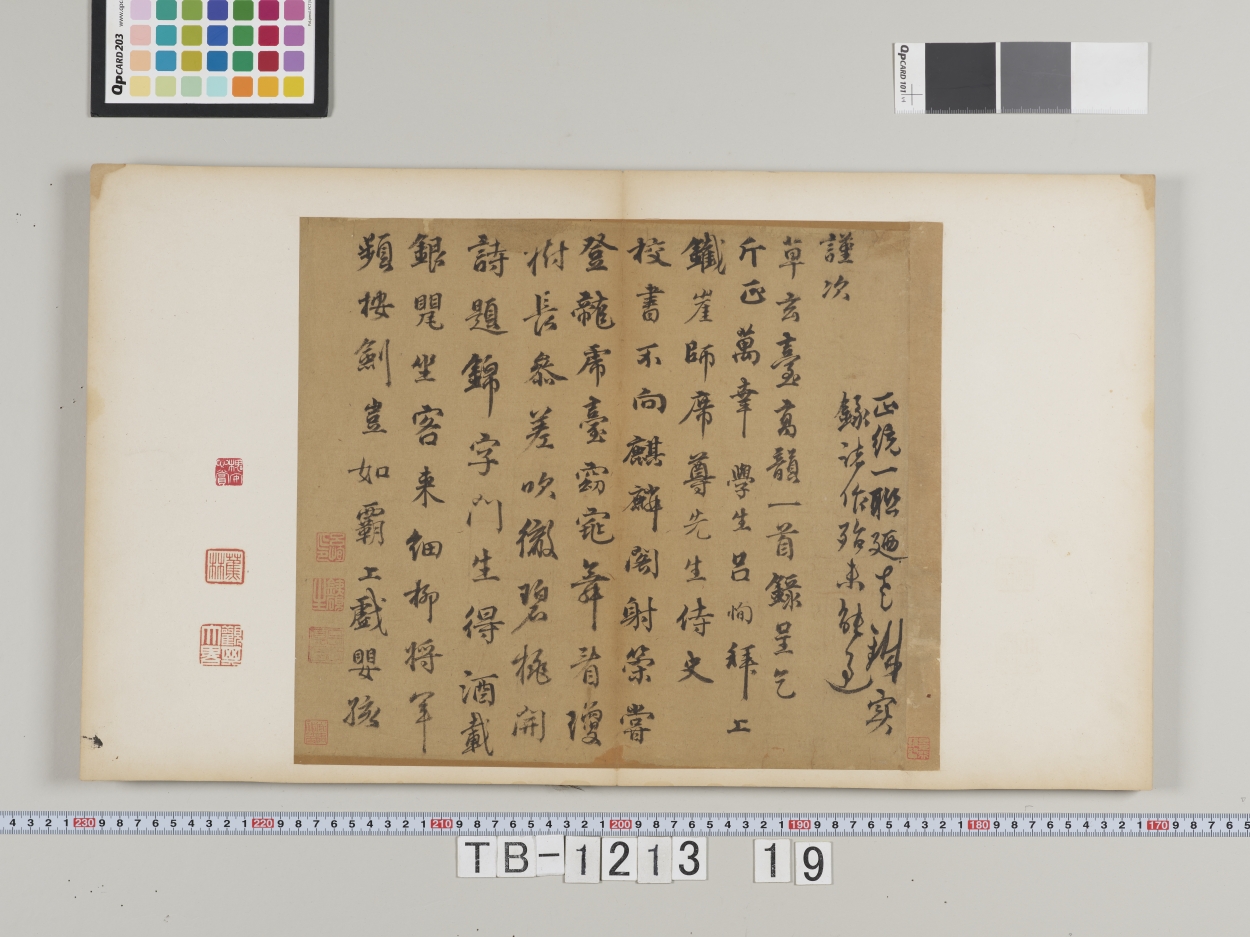 正統一聯迺是鐵實
錄諸作殆未能過
謹次
草玄臺高韻一首錄呈乞
斤正萬幸 學生呂恂拜上
鐵崖師席尊先生侍史
校書不向麒麟閣射策嘗
登龍虎臺窈窕舞看瓊
樹長參差吹徹碧桃開
詩題錦字門生得酒載
銀甖坐客来細柳將軍
頻按劍豈如覇上戲嬰孩
QPCARD 203
QPCARD 101
4 3 2 1 230 9 8 7 6 5 4 3 2 1 220 9 8 7 6 5 4 3 2 1 210 9 8 7 6 5 4 3 2 1 200 9 8 7 6 5 4 3 2 1 190 9 8 7 6 5 4 3 2 1 180 9 8 7 6 5 4 3 2 1 170 9 8 7 6 5
TB-1213 19